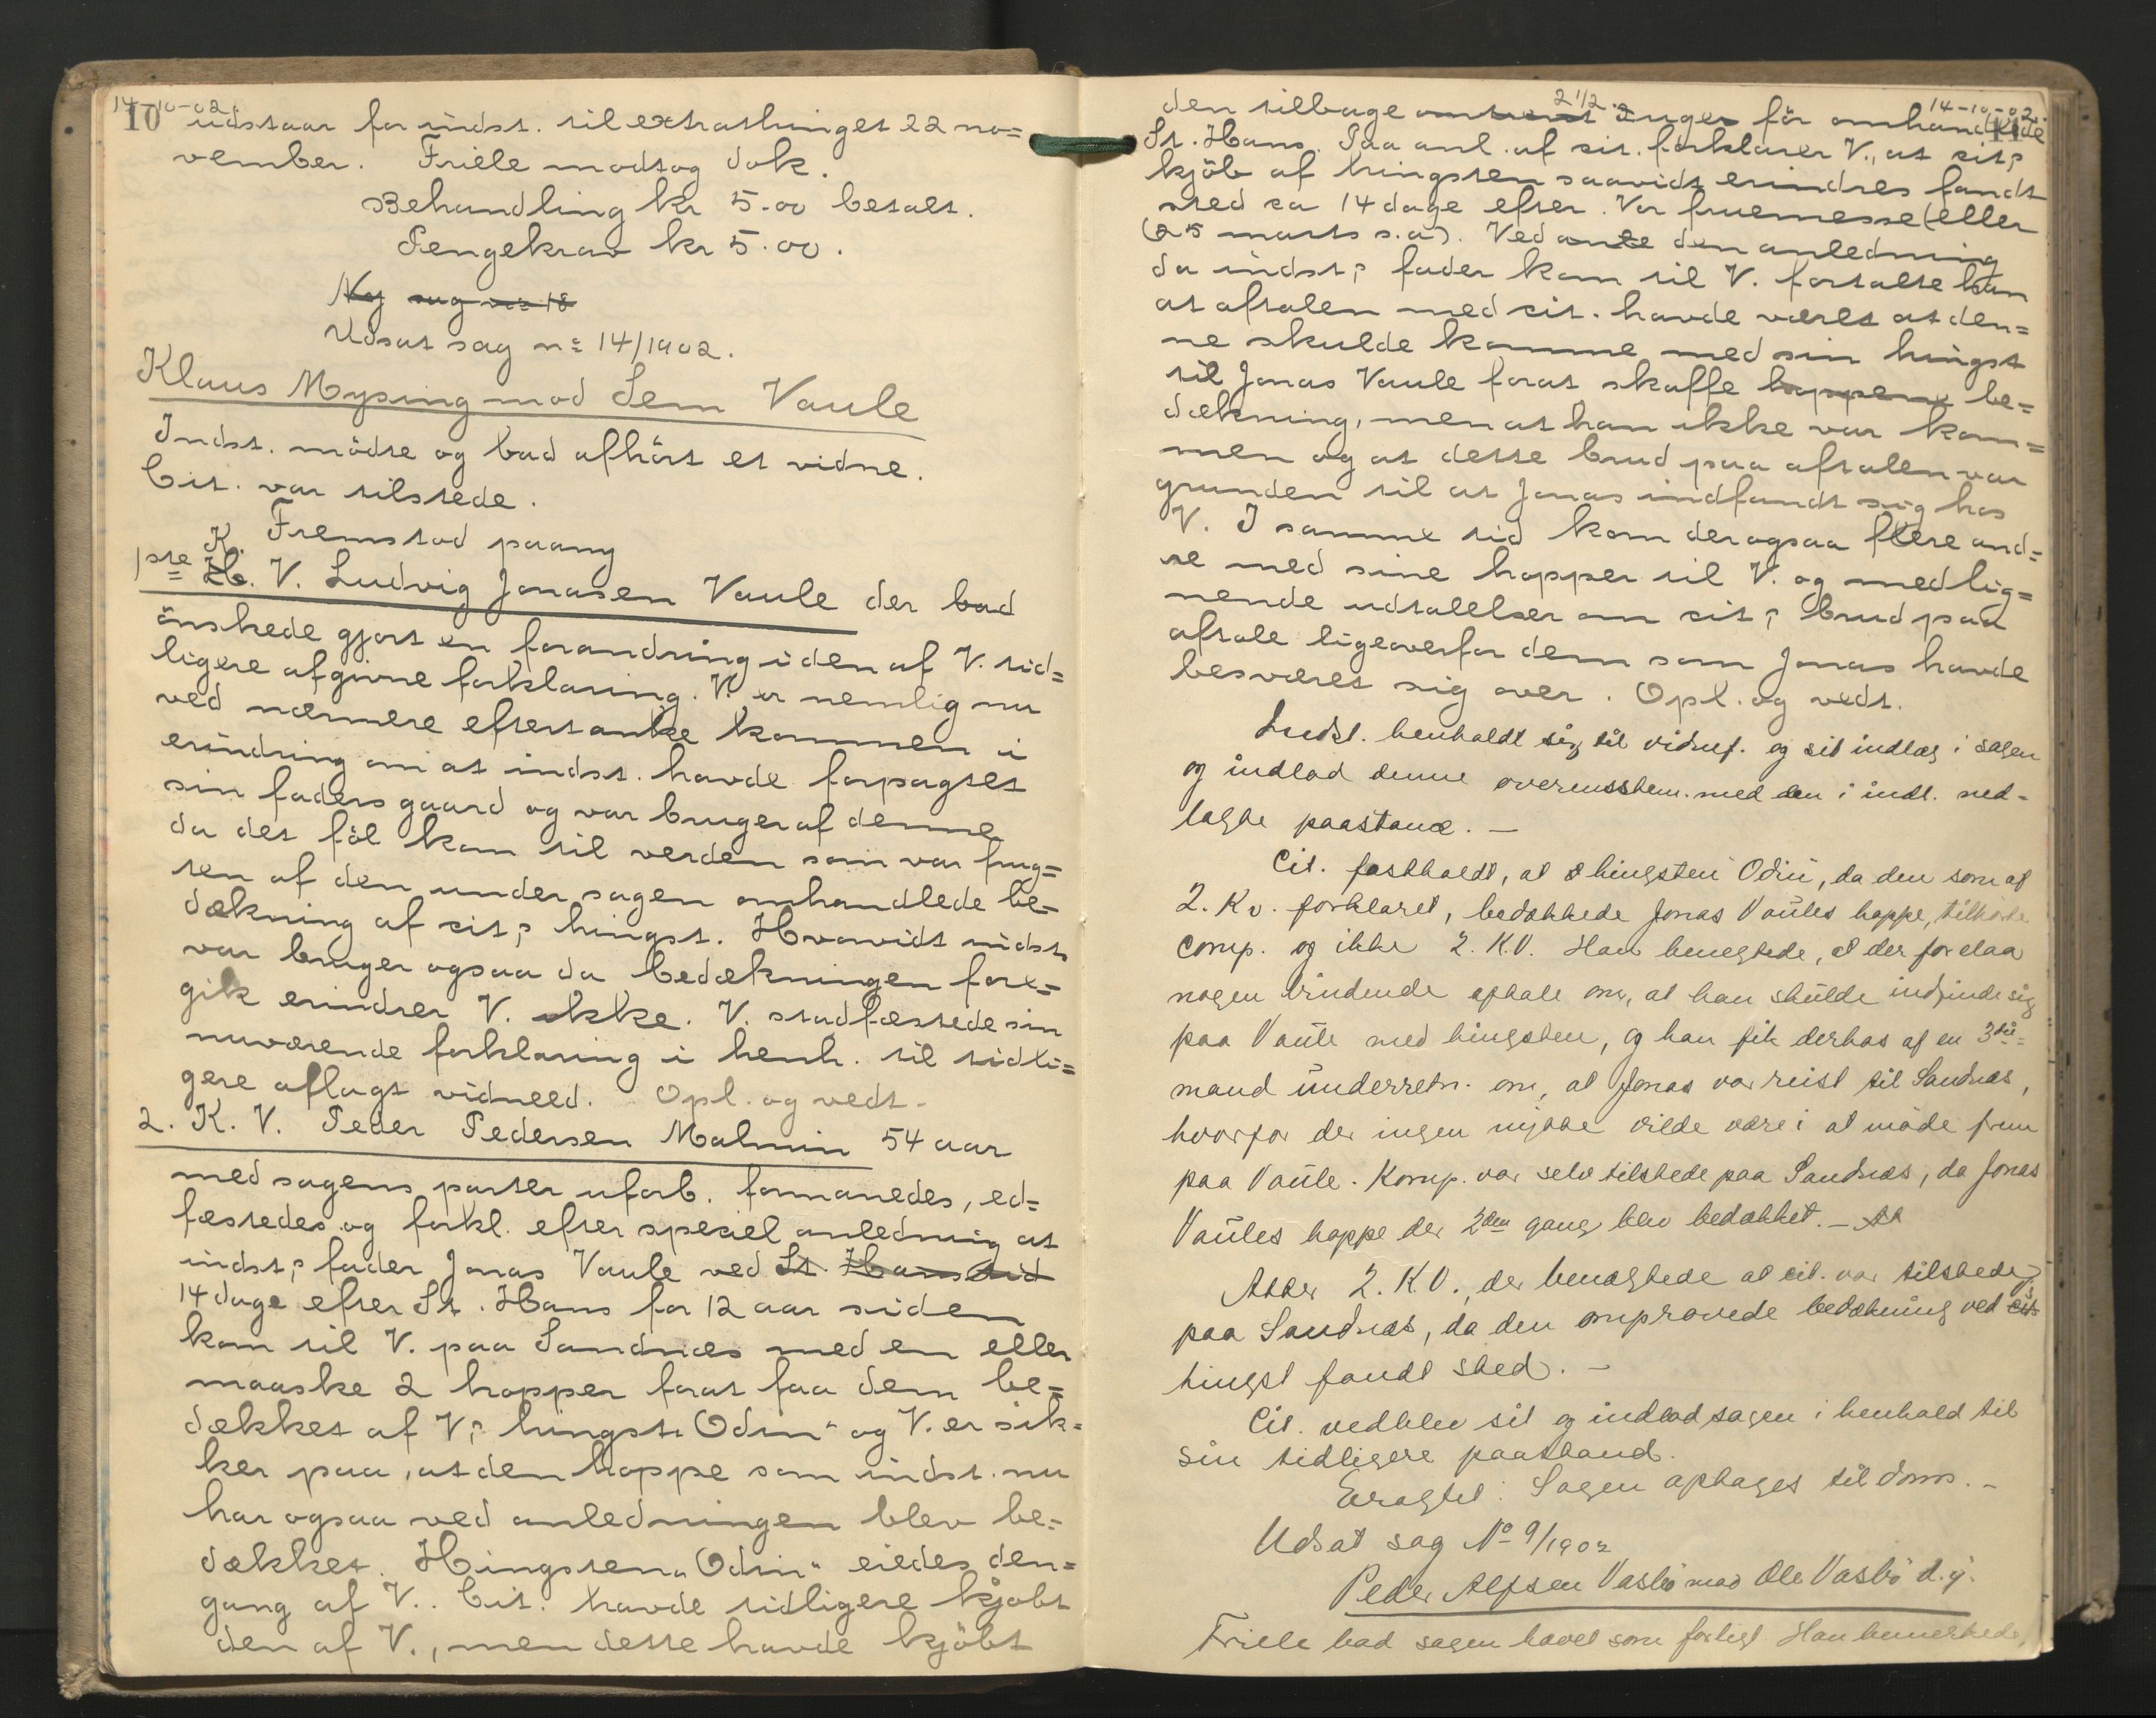 14-10-02.
10
udstaar for indst. til extrathinget 22 no=
vember. Friele modtog dok.
Behandling kr 5.00 betalt.
Pengekrav kr 5.00.
Ny sag no 18
Udsat sag no 14/1902.
Klaus Mysing mod Sem Vaule
Indst. mödte og bad afhört et vidne.
Cit. var tilstede.
Fremstod paany
1ste K. V. Ludvig Jonasen Vaule der bad
önskede gjort en forandring i den af V. tid=
ligere afgivne forklaring. V. er nemlig nu
ved nærmere eftertanke kommen i
erindring om at indst. havde forpagtet
sin faders gaard og var bruger af denne
da det föl kom til verden som var frug=
ten af den under sagen omhandlede be=
dækning af cit's hingst. Hvorvidt indst.
var bruger ogsaa da bedækningen fore=
gik erindrer V. ikke. V. stadfæstede sin
nuværende forklaring i henh. til tidli=
gere aflagt vidneed. Opl. og vedt.
2. K. V. Peder Pedersen Malmin 54 aar
med sagens parter uforb. formanedes, ed=
fæstedes og forkl. efter speciel anledning at
indst's fader Jonas Vaule ved St. Hanstid
14 dage efter St. Hans for 12 aar siden
kom til V. paa Sandnæs med en eller
maaske 2 hopper forat faa dem be=
dækket af V's hingst „Odin" og V. er sik=
ker paa, at den hoppe som indst. nu
har ogsaa ved anledningen blev be=
dækket. Hingsten „Odin" eiedes den=
gang af V.. Cit. havde tidligere kjöbt
den af V., men dette havde kjöbt
14-10-02.
11
2 1/2
den tilbage omtrent 2 uger för omhandlede
St. Hans. Paa anl. af cit. forklarer V., at cit's
kjöb af hingsten saavidt erindres fandt
sted ca 14 dage efter Vor fruemesse (eller
(25 marts s.a). Ved den anledning
da indst's fader kom til V. fortalte han
at aftalen med cit. havde været at den=
ne skulde komme med sin hingst
til Jonas Vaule forat skaffe hoppene be=
dækning, men at han ikke var kom=
men og at dette brud paa aftalen var
grunden til at Jonas indfandt sig hos
V. I samme tid kom der ogsaa flere and=
re med sine hopper til V. og med lig=
nende udtalelser om cit's brud paa
aftale ligeoverfor dem som Jonas havde
besværet sig over. Opl. og vedt.
Indst. henholdt sig til vidnef. og sit indlæg i sagen
og indlod denne overensstem. med den i indl. ned-
lagte paastand. —
Cit. fastholdt, at hingsten Odin, da den som af
2. Kv. forklaret, bedækkede Jonas Vaules hoppe, tilhörte
comp. og ikke 2. K.V. Han benegtede, at der forelaa
nogen bindende aftale om, at han skulde indfinde sig
paa Vaule med hingsten, og han fik derhos af en 3die=
mand underretn. om, at Jonas var reist til Sandnæs,
hvorfor der ingen nytte vilde være i at möde frem
paa Vaule. Komp. var selv tilstede paa Sandnæs, da Jonas
Vaules hoppe der 2den gang blev bedækket. —
Atter 2. K.V., der benægtede at cit. var tilstede
paa Sandnæs, da den omprovede bedækning ved cit's
hingst fandt sted. —
Cit. vedblev sit og indlod sagen i henhold til
sin tidligere paastand.
Eragtet: Sagen optages til doms. —
Udsat sag No 9/1902
Peder Alfsen Vasbö mod Ole Vasbö d.y.
Friele bad sagen hævet som forligt. Han bemerkede,